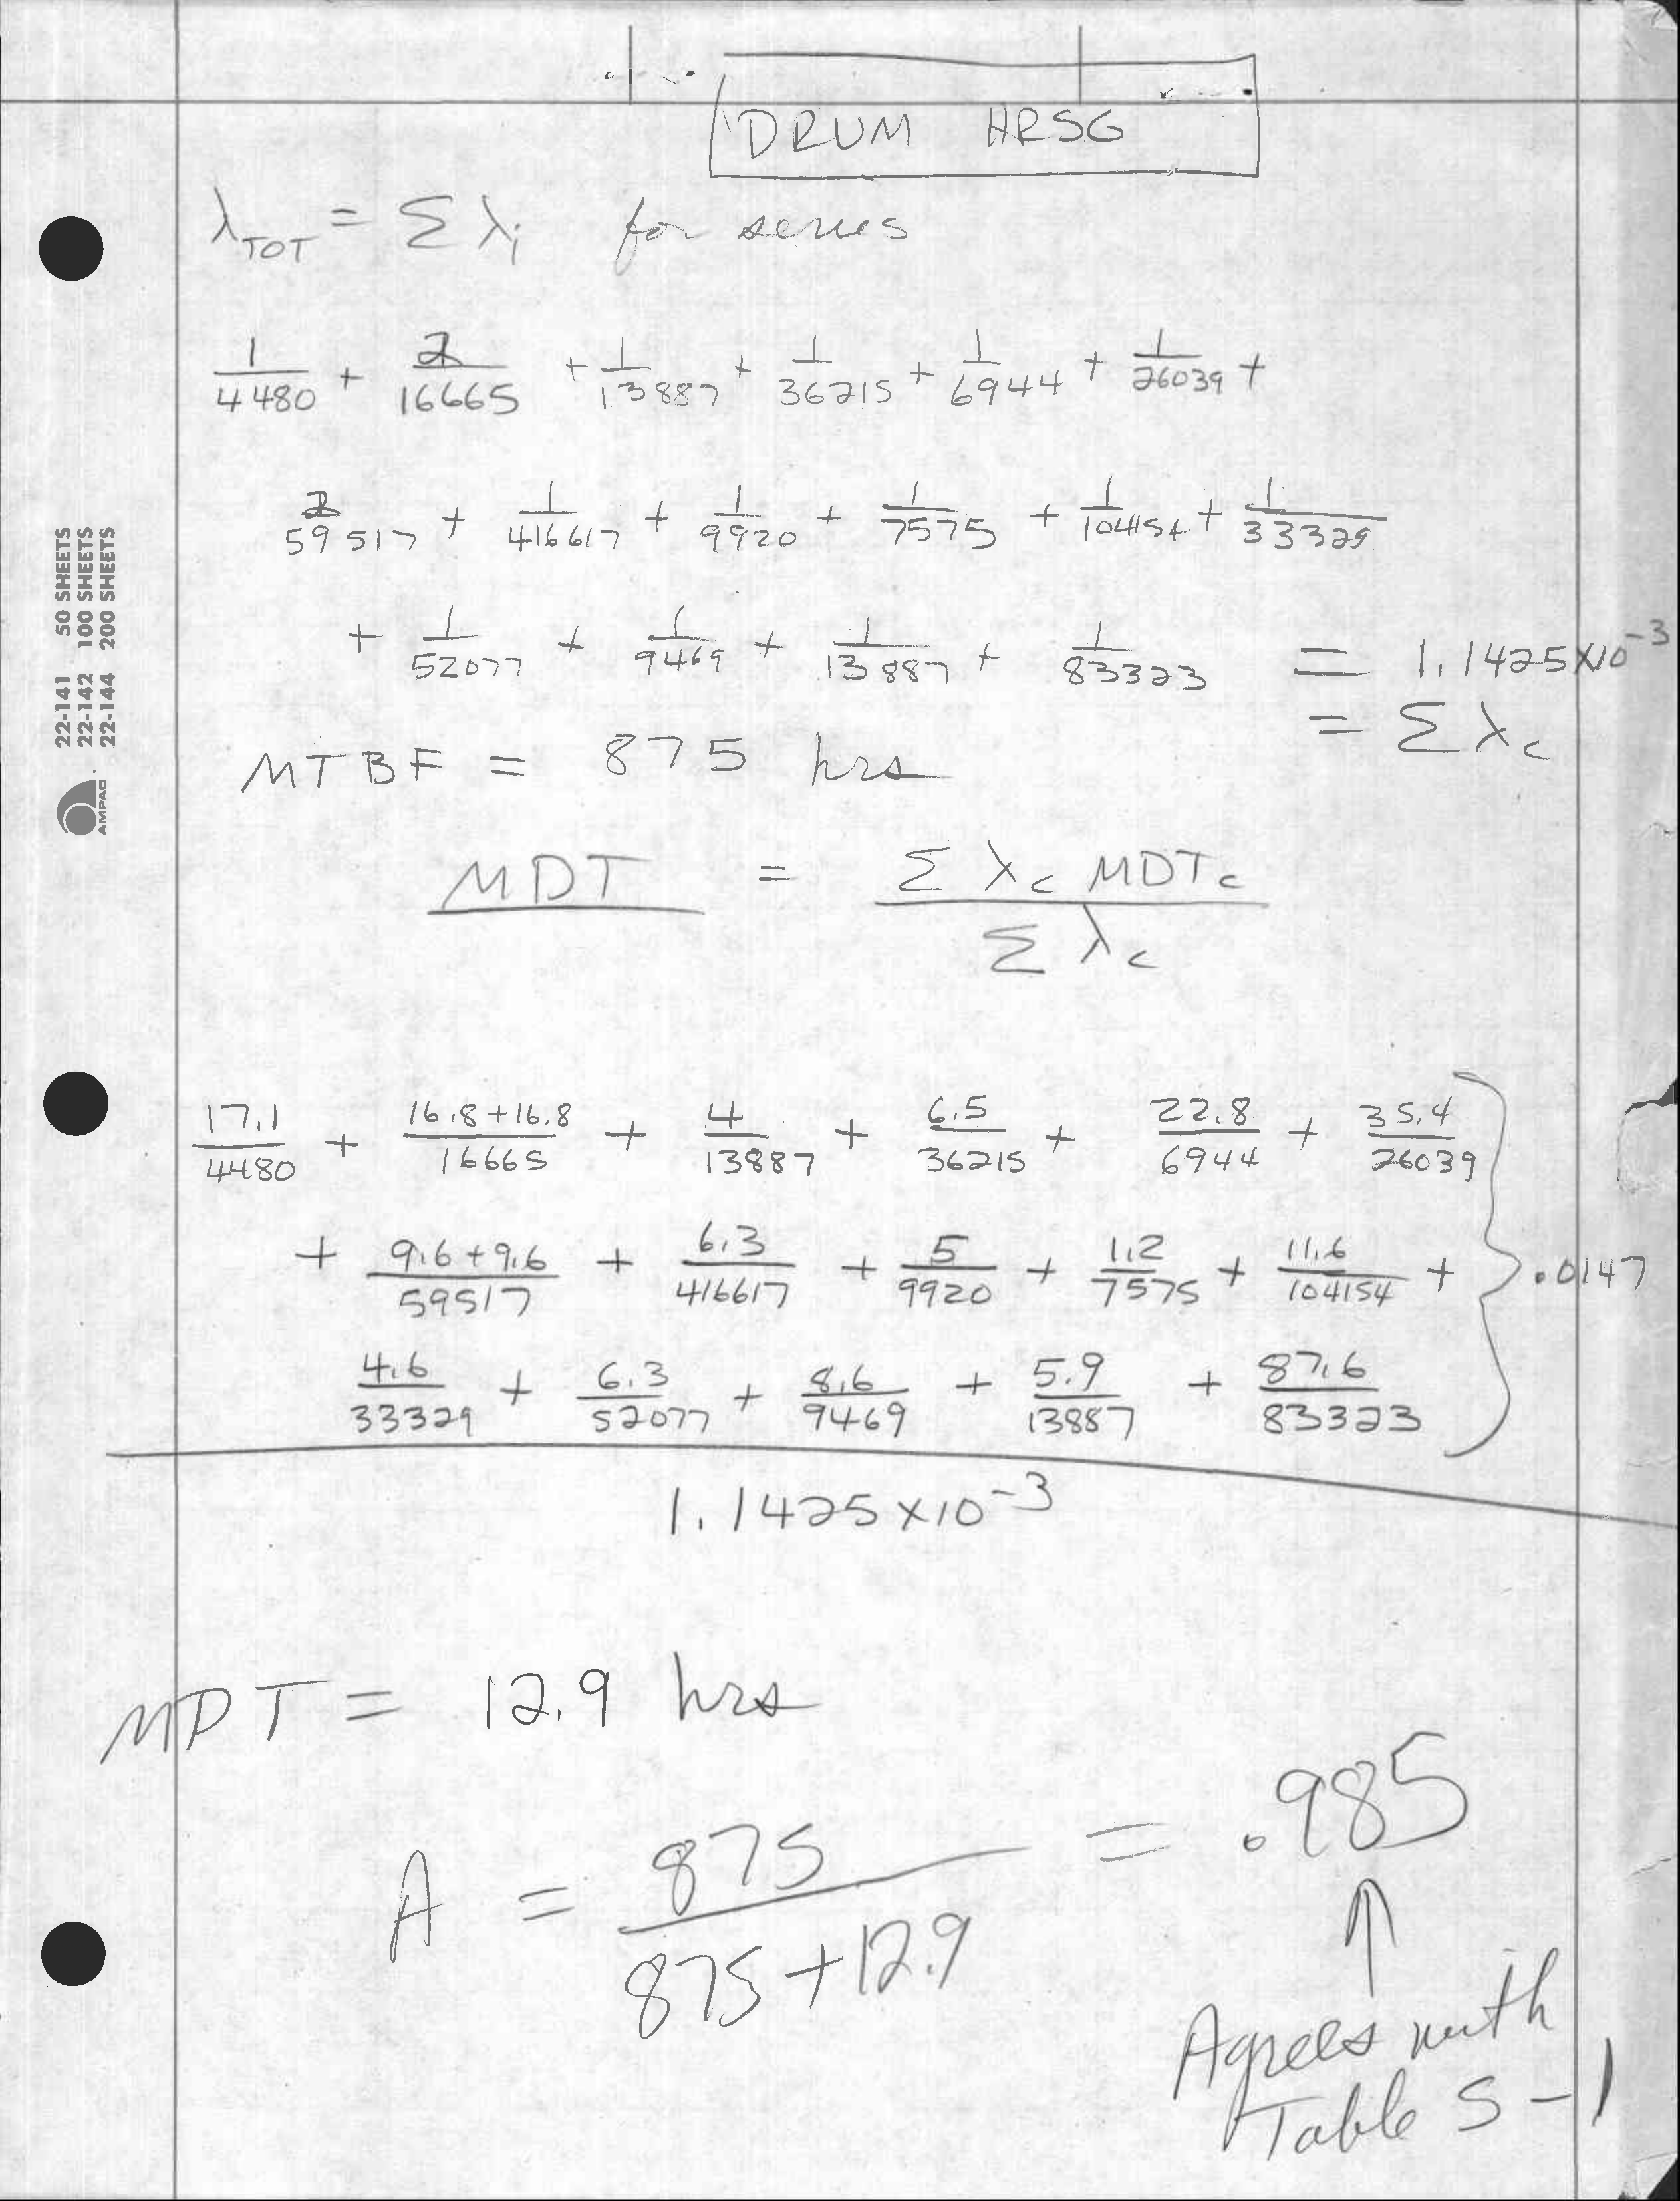 DRUM HRSG
λTOT = Σ λi for series
1/4480 + 2/16665 + 1/13887 + 1/36215 + 1/6944 + 1/26039 +
2/59517 + 1/416617 + 1/9920 + 1/7575 + 1/104154 + 1/33329
+ 1/52077 + 1/9469 + 1/13887 + 1/83323 = 1.1425×10^-3
= Σ λc
MTBF = 875 hrs
MDT = Σ λc MDTc / Σ λc
17.1/4480 + 16.8+16.8/16665 + 4/13887 + 6.5/36215 + 22.8/6944 + 35.4/26039
+ 9.6+9.6/59517 + 6.3/416617 + 5/9920 + 1.2/7575 + 11.6/104154 + } .0147
4.6/33329 + 6.3/52077 + 8.6/9469 + 5.9/13887 + 87.6/83323
1.1425×10^-3
MDT = 12.9 hrs
A = 875/875+12.9 = .985
Agrees with
Table S-1
22-141 50 SHEETS
22-142 100 SHEETS
22-144 200 SHEETS
AMPAD